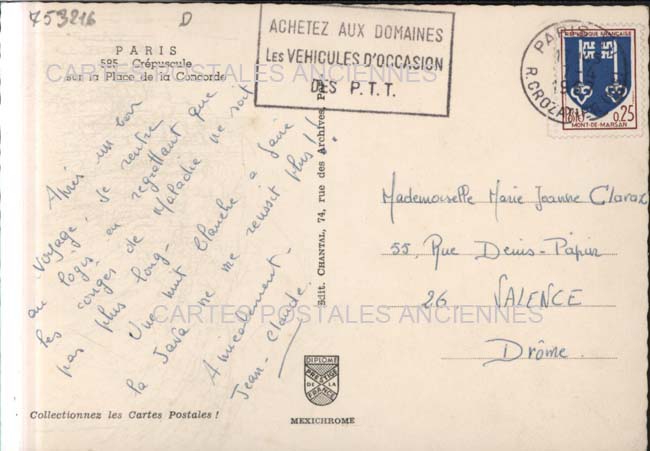 753216
D
PARIS
595 - Crépuscule
sur la Place de la Concorde
ACHETEZ AUX DOMAINES
Les VEHICULES D'OCCASION
DES P.T.T.
PARIS
R. CROZATIER
REPUBLIQUE FRANÇAISE
0,25
MONT-DE-MARSAN
CARTES POSTALES ANCIENNES
Après un bon
voyage, je rentre
au logis en regrettant que
les congés de Maladie ne soit
pas plus long-
Une nuit blanche à faire
la Java ne me réussit plus!!
Amicalement-
Jean-Claude.
Edit. CHANTAL, 74, rue des Archives,
Mademoiselle Marie Jeanne Claraz
55, Rue Denis-Papin
26 VALENCE
Drôme.
CARTES POSTALES ANCIENNES
DIPLOME
PRESTIGE
DE LA
FRANCE
MEXICHROME
Collectionnez les Cartes Postales !